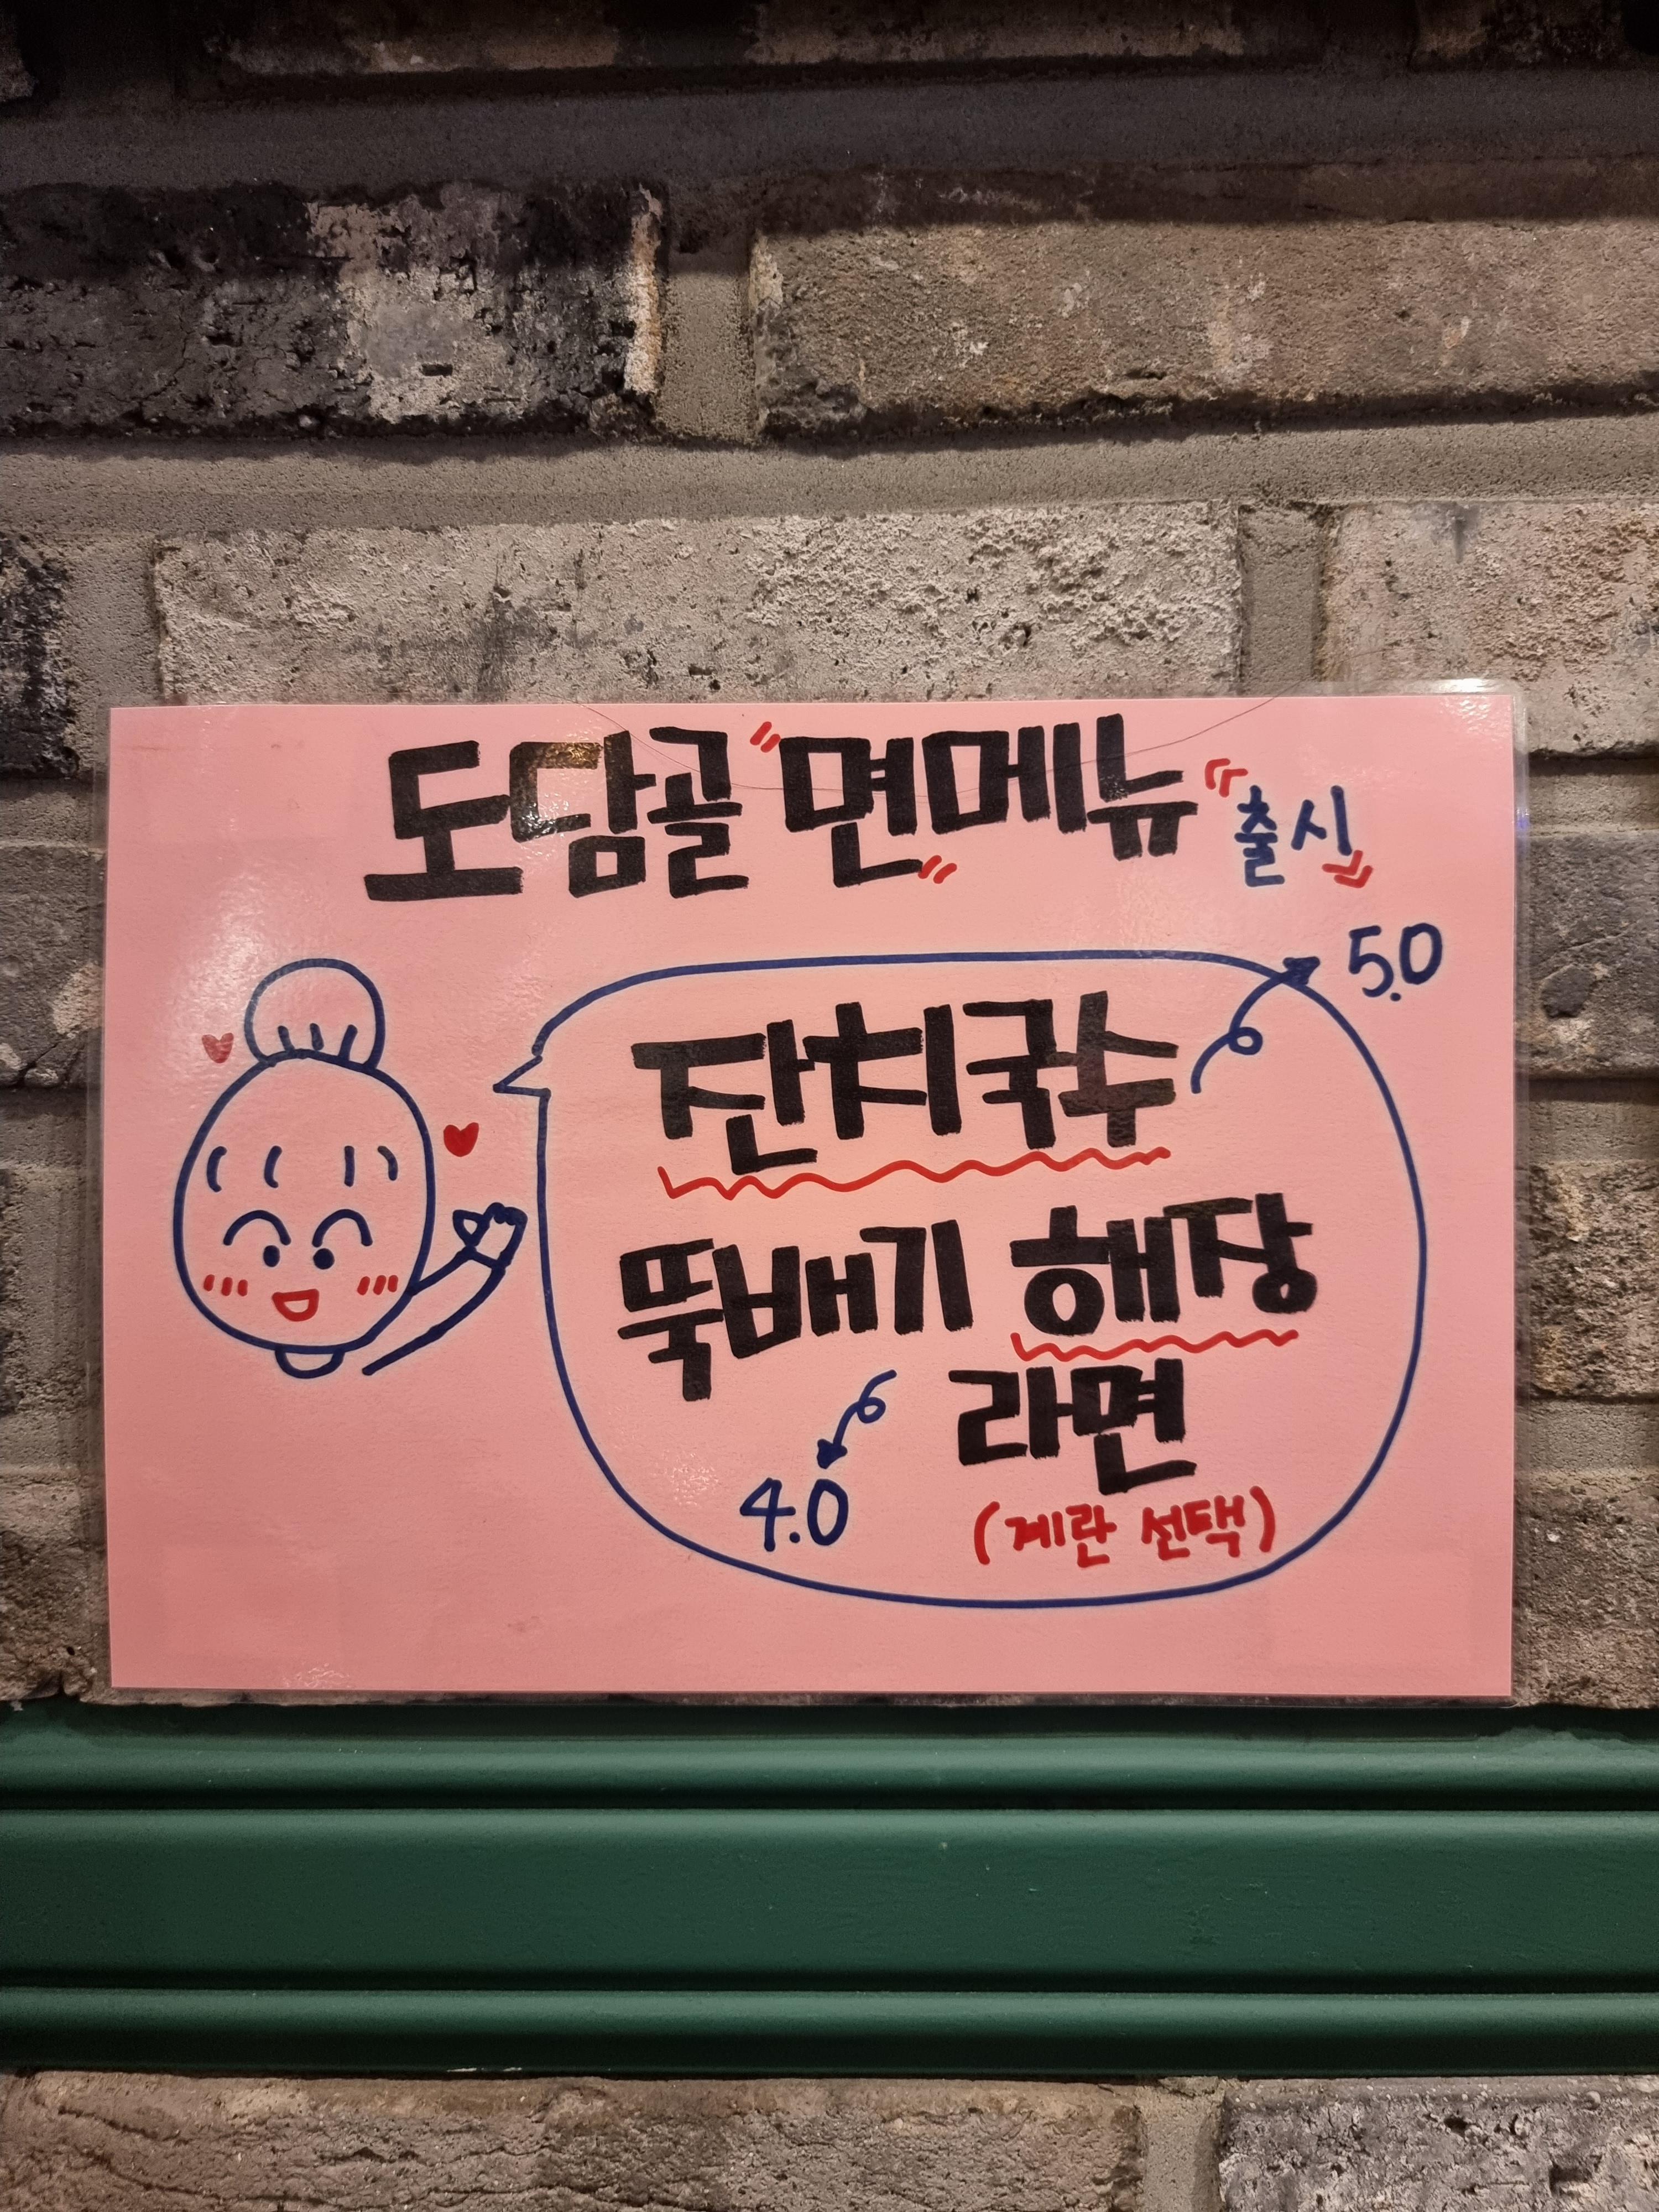 도담골 "면메뉴" 출시
5.0
잔치국수
뚝배기 해장
라면
4.0
(계란 선택)